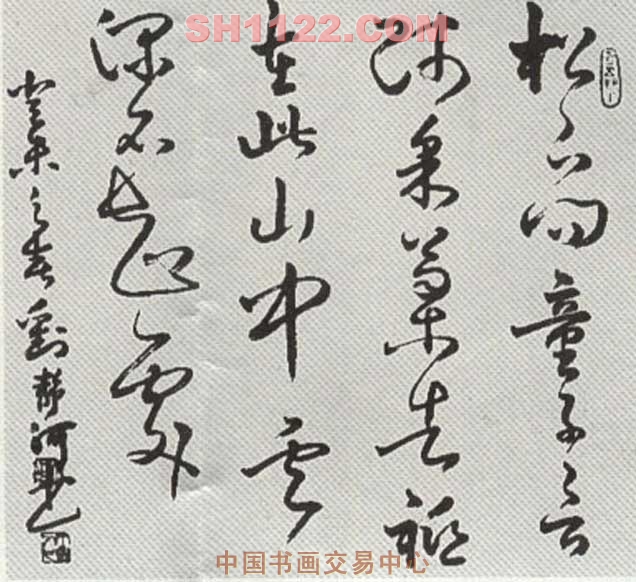 SH1122.COM
松下问童子言
师采藥去祗
在此山中云
深不知處
癸未之春劉静河
中国书画交易中心